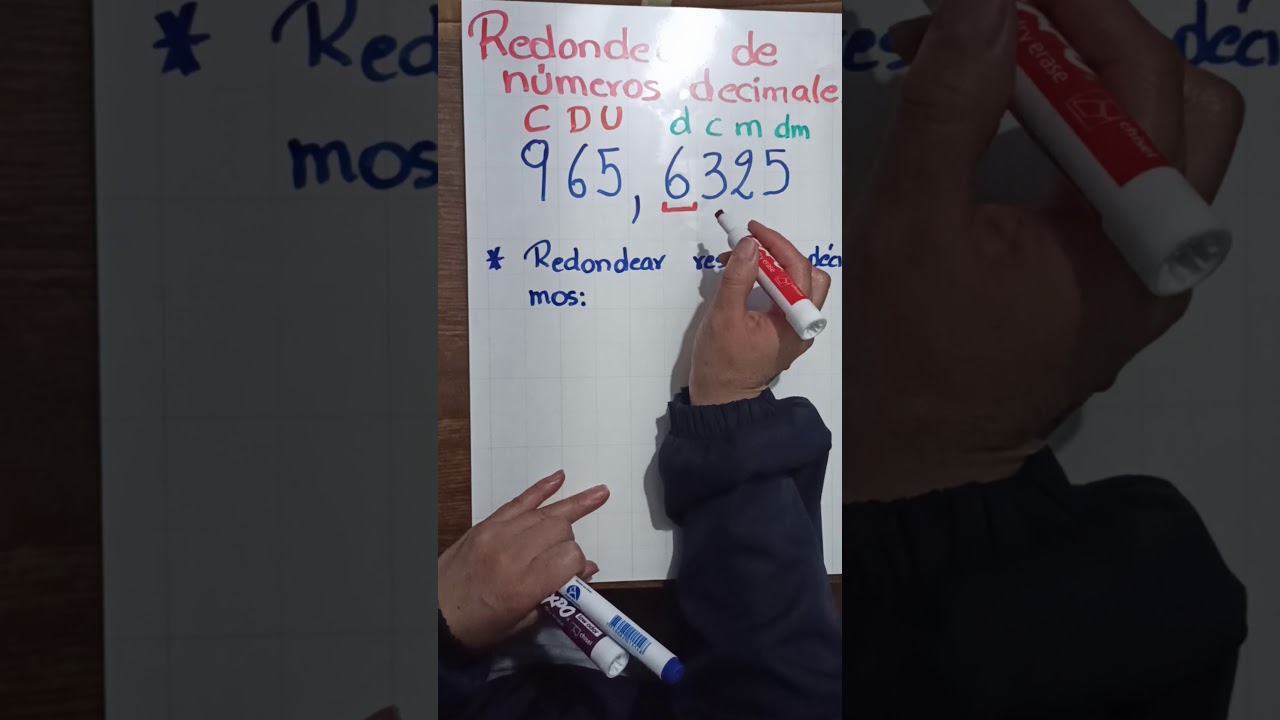 Redonde de
números decimale
C D U d c m dm
965,6325
* Redondear res déci
mos:
EXPO